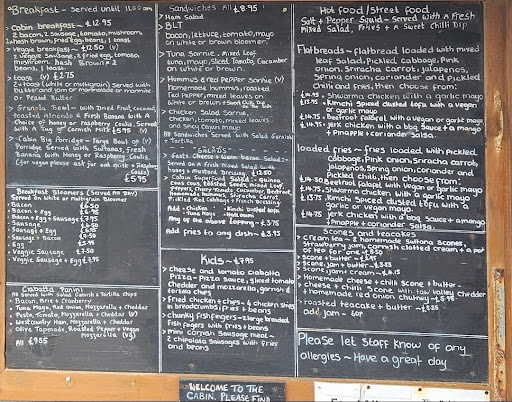 Breakfast - served until 11.00am
Cabin breakfast - £12.95
2 bacon, 2 sausage, tomato, mushroom,
2 hash brown, fried egg, beans, 1 toast
Veggie Breakfast - £12.50 (v)
2 veggie sausages, 2 fried egg, tomato,
mushroom, Hash Brown x 2
Beans, 1 toast.
Toast (v) £2.75
butter and jam or marmalade or marmite
or Peanut Butter
Granola Bowl - with Dried Fruit, coconut,
Roasted Almonds & Fresh Banana with a
Choice of Honey or raspberry Coulis. Served
with a Jug of Cornish Milk £5.95 (v)
Cabin Big Porridge - Large Bowl of (v)
Porridge Served with Sultanas, Fresh
Banana with Honey or Raspberry Coulis.
(for vegan please ask for oat milk + Raspberry
Coulis)
£5.95
Breakfast Bloomers (Served all Day)
Served on White or Multigrain Bloomer
Bacon £6.50
Bacon + Egg £6.95
Bacon + Egg + Sausage £7.95
Sausage £6.50
Sausage + Egg
Sausage + Bacon
Egg £5.95
Veggie Sausage £7.50
Veggie Sausage + Egg £7.95
Ciabatta Panini
All served with Salad Garnish + Tortilla Chips
Bacon, Brie + Cranberry
Tuna Mayo, Red Onion, Mozzarella + Cheddar
Pesto, Tomato, Mozzarella + Cheddar (v)
West Country Ham, Mozzarella + Cheddar
Olive Tapenade, Roasted Pepper + Vegan
Mozzarella (vg)
All £9.55
Sandwiches All £8.95
Ham Salad
BLT
Bacon, lettuce, tomato, mayo
on white or brown bloomer.
Tuna Sarnie, Mixed Leaf
tuna, mayo, sliced Tomato, Cucumber
on white or brown.
Hummus & red Pepper Sarnie (v)
homemade hummus, roasted
Red Pepper, mixed leaves on
white or brown
Chicken Salad Sarnie,
Chicken, tomato, mixed leaves
and Mayo
All Sandwiches Served with Salad Garnish
+ Tortilla
Salads
Goats Cheese + warm bacon Salad
Served on a Fresh Mixed Salad with
honey + mustard Dressing £12.50
Cabin Superfood Salad - Quinoa,
Cous cous, Roasted Seeds, Mixed Leaf
Pickled Red Cabbage + French Dressing
Add - Chicken - Kimchi Dusted Tofu
- Tuna Mayo - Halloumi
Any of the above toppings - £3.75
Add fries to any dish - £3.95
Kids - £7.95
Cheese and tomato ciabatta
Pizza - Pizza sauce, sliced tomato
cheddar and mozzarella, garnish &
tortilla chips
Fried chicken + chips - 4 chicken strips
in breadcrumbs, fries + beans
Chunky fishfingers - 2 large breaded
fish fingers with fries + beans
Mini Cornish Sausage meal -
2 chipolata sausages with fries
and beans
WELCOME TO THE
CABIN. PLEASE FIND
Hot food/Street food
Salt + Pepper Squid - Served with a Fresh
Mixed Salad, Fries + a Sweet Chilli Dip
Flatbreads - flatbread loaded with mixed
leaf salad, Pickled cabbage, Pink
onion, Sriracha carrots, jalapenos,
Spring onion, coriander and Pickled
Chilli and fries, then choose from:
£14.95 Shwarma chicken with a garlic mayo
Kimchi Spiced dusted tofu with a vegan
garlic mayo
£14.75 Beetroot falafel with a vegan or garlic mayo
£14.95 Jerk chicken with a bbq Sauce + a mango
+ Pineapple + coriander Salsa.
loaded fries - fries loaded with pickled
Cabbage, Pink onion, Sriracha carrots,
jalapenos, Spring onion, coriander and
Pickled chilli, then choose from:
£14.50 Beetroot falafel with Vegan or garlic mayo
£14.75 Shwarma chicken with a garlic mayo
£13.75 Kimchi Spiced dusted tofu with a
garlic or vegan mayo.
£14.75 Jerk chicken with a bbq Sauce + a mango
+ Pineapple + coriander Salsa.
Scones and Teacakes
Cream tea - 2 homemade sultana Scones,
Strawberry jam, Cornish clotted cream + a pot
of tea for one
Scone + butter
Scone, jam + butter
Scone, jam + cream
Homemade cheese + chilli scone + butter -
Cheese + chilli Scone with Taw Valley cheddar
+ homemade red onion chutney
Roasted teacake + butter - £3.25
add jam - 60p
Please let Staff know of any
allergies ~ Have a great day